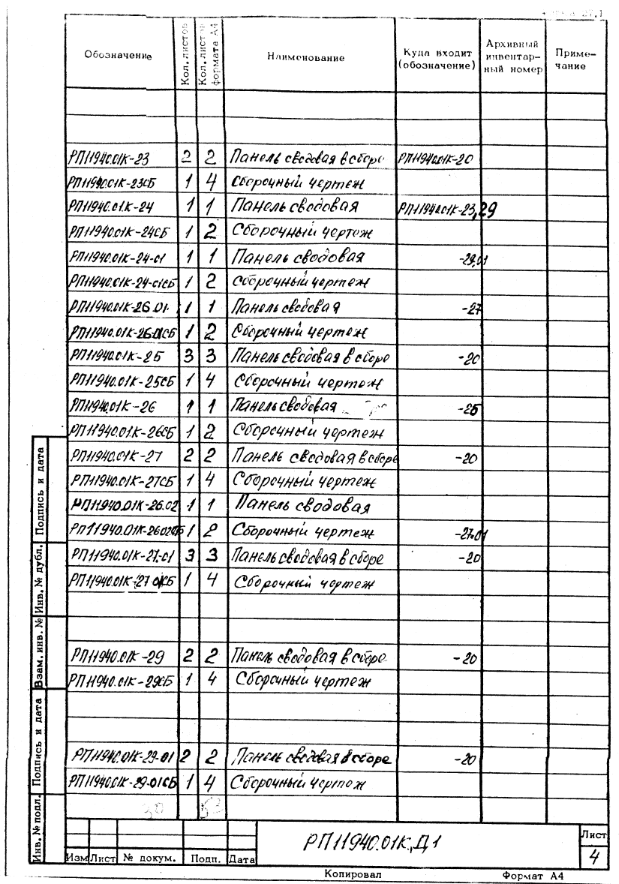 Обозначение Кол. листов Кол. листов формата А4 Наименование Куда входит (обозначение) Архивный инвентар-ный номер Приме-чание
РП11940.01К-23 2 2 Панель сводовая в сборе РП11940.01К-20
РП11940.01К-23СБ 1 4 Сборочный чертеж
РП11940.01К-24 1 1 Панель сводовая РП11940.01К-23,29
РП11940.01К-24СБ 1 2 Сборочный чертеж
РП11940.01К-24-01 1 1 Панель сводовая -29.01
РП11940.01К-24-01СБ 1 2 Сборочный чертеж
РП11940.01К-26.01 1 1 Панель сводовая -27
РП11940.01К-26.01СБ 1 2 Сборочный чертеж
РП11940.01К-25 3 3 Панель сводовая в сборе -20
РП11940.01К-25СБ 1 4 Сборочный чертеж
РП11940.01К-26 1 1 Панель сводовая -25
РП11940.01К-26СБ 1 2 Сборочный чертеж
РП11940.01К-27 2 2 Панель сводовая в сборе -20
РП11940.01К-27СБ 1 4 Сборочный чертеж
РП11940.01К-26.02 1 1 Панель сводовая
РП11940.01К-26.02СБ 1 2 Сборочный чертеж -27.01
РП11940.01К-27-01 3 3 Панель сводовая в сборе -20
РП11940.01К-27-01СБ 1 4 Сборочный чертеж
РП11940.01К-29 2 2 Панель сводовая в сборе -20
РП11940.01К-29СБ 1 4 Сборочный чертеж
РП11940.01К-29-01 2 2 Панель сводовая в сборе -20
РП11940.01К-29-01СБ 1 4 Сборочный чертеж
30 53
Подпись и дата
Инв. № дубл.
Взам. инв. №
Подпись и дата
Инв. № подл.
Изм Лист № докум. Подп. Дата
РП11940.01К,Д1
Лист
4
Копировал Формат А4